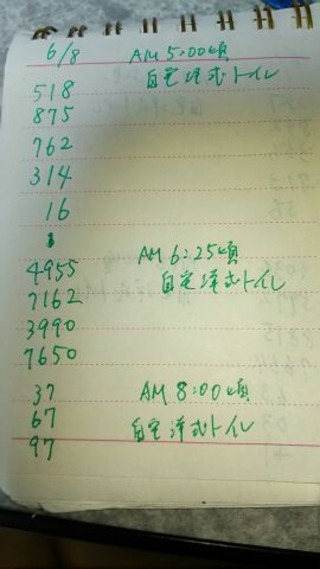 6/8 AM 5:00頃
518 自宅洋式トイレ
875
762
314
16
4955 AM 6:25頃
7162 自宅洋式トイレ
3990
7650
37 AM 8:00頃
67 自宅洋式トイレ
97